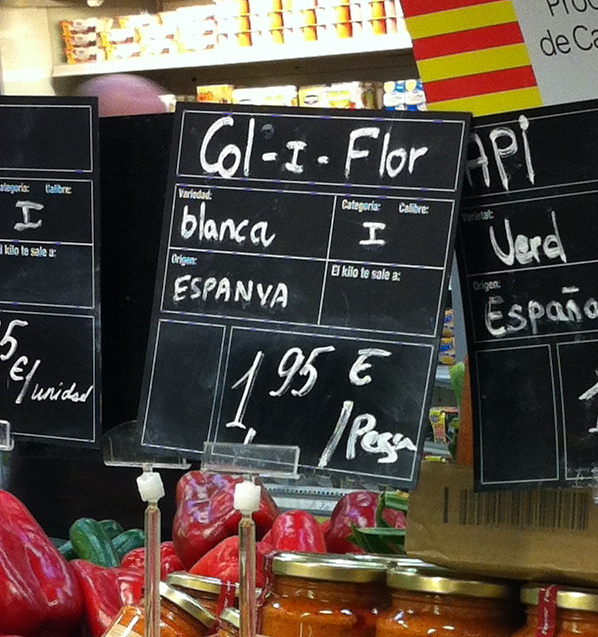 Produ
de Ca
Categoria: Calibre:
I
El kilo te sale a:
5
€/unidad
Col-I-Flor
Variedad: Categoria: Calibre:
blanca I
Origen: El kilo te sale a:
ESPANYA
1,95 €
/Peça
API
Varietat:
Verd
Origen:
España
1